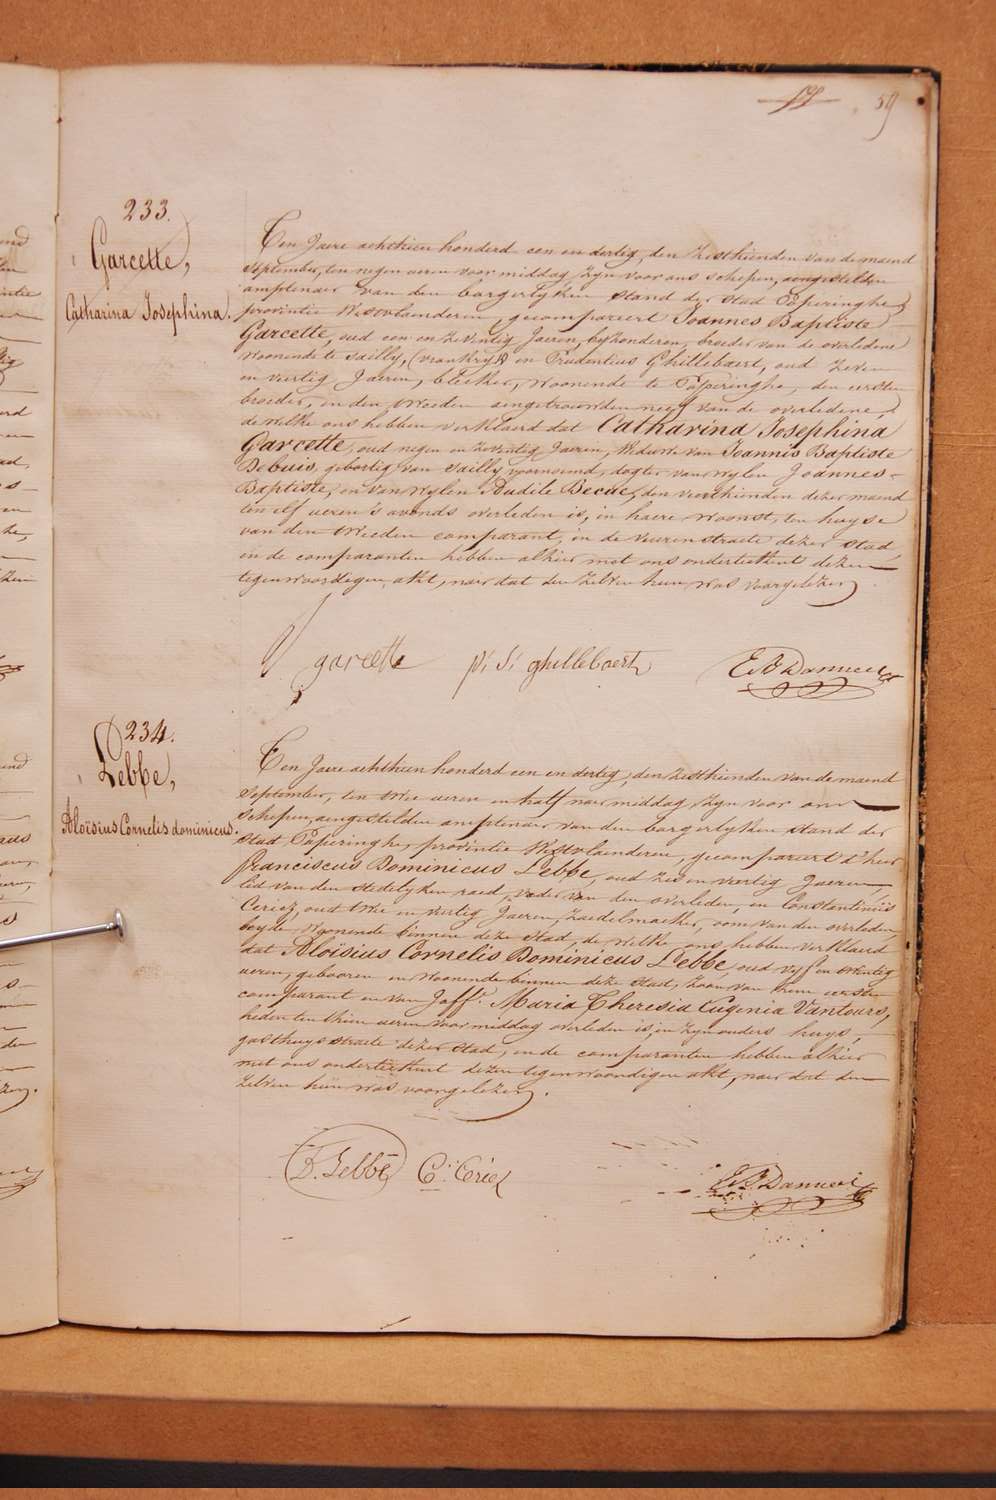 59
233.
Garcette,
Catharina Josephina.
Ten Jaere achthien honderd een en dertig, den zesthienden van de maend
September, ten negen ueren voor middag zyn voor ons schepen, aengestelden
amptenaer van den borgerlyken stand der stad Poperinghe,
provintie Westvlaenderen, gecompareert Joannes Baptiste
Garcette, oud een en zeventig Jaeren, byzonderen, broeder van de overledene
woonende te Sailly, (vrankryk) en Prudentius Ghillebaert, oud zeven
en viertig Jaeren, bleeker, woonende te Poperinghe, den eersten
broeder, en den tweeden aengetrouwden neef van de overledene,
de welke ons hebben verklaerd dat Catharina Josephina
Garcette, oud negen en zeventig Jaeren, Weduwe van Joannis Baptiste
Debuis, gebortig van Sailly voornoemd, dogter van wylen Joannes-
Baptiste, en van wylen Audile Becue, den vierthienden dezer maend
ten elf ueren s'avonds overleden is, in haere woonst, ten huyse
van den tweeden comparant, in de veurenstraete dezer stad,
en de comparanten hebben alhier met ons onderteekent dezen
tegenwoordigen akt, naer dat den zelven hun was voorgelezen.
garcette p: S: ghillebaert
234.
Lebbe,
Aloïsius Cornelis dominicus.
Ten Jaere achthien honderd een en dertig, den zesthienden van de maend
September, ten twee ueren en half naer middag zyn voor ons
Schepen, aengestelden amptenaer van den borgerlyken stand der
stad Poperinghe, provintie Westvlaenderen, gecompareert d'heer
franciscus Dominicus Lebbe, oud zes en viertig Jaeren,
lid van den stedelyken raed, vader van den overleden, en Constantinüs
Ceriez, oud twee en viertig Jaeren, Zaedelmaeker, oom van den overleden
beyde woonende binnen deze stad, de welke ons hebben verklaerd
dat Aloïsius Cornelis Dominicus Lebbe, oud vyf en twintig
ueren, gebooren en woonende binnen deze stad, zoon van hem eersten
comparant en van Joff: Maria Theresia Eugenia Vantours,
heden ten thien ueren voor middag overleden is, in zyn ouders huys,
gasthuys straete dezer stad, en de comparanten hebben alhier
met ons onderteekent dezen tegenwoordigen akt, naer dat den
zelven hun was voorgelezen.
D. Lebbe C: Ceriez